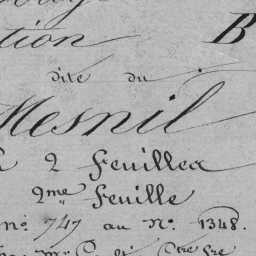 tion B
dite du
Mesnil
2 Feuilles
2me Feuille
no. 747 au No. 1348.